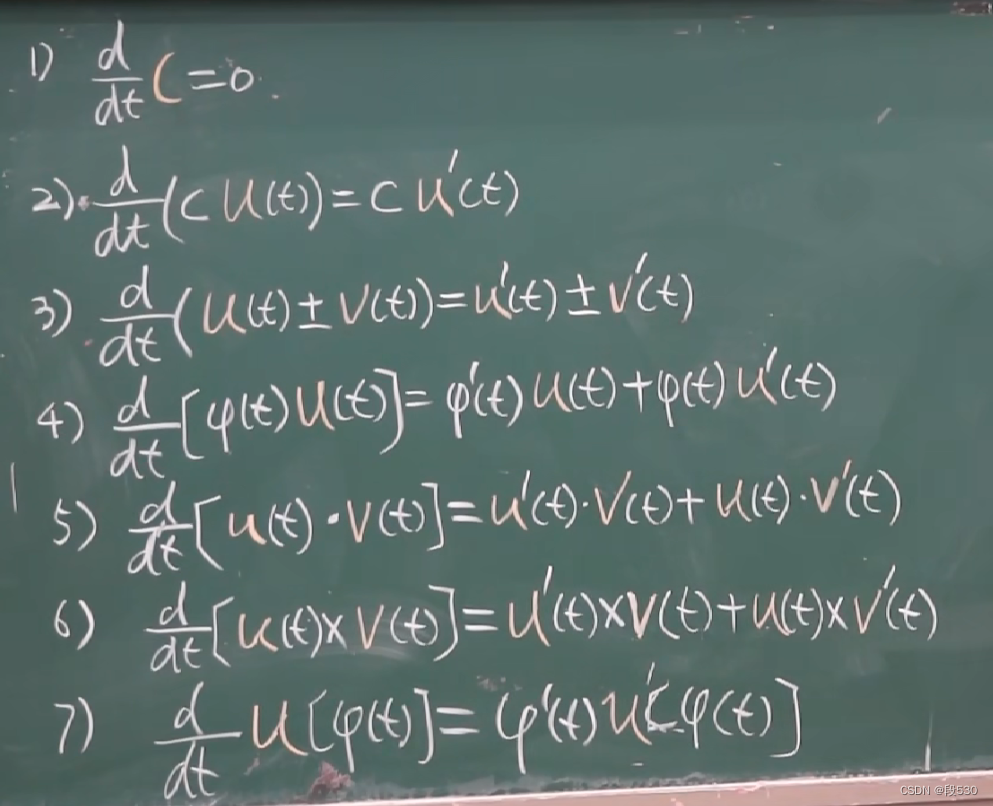 1) d/dt C = 0
2) d/dt (C u(t)) = C u'(t)
3) d/dt (u(t) ± v(t)) = u'(t) ± v'(t)
4) d/dt [φ(t) u(t)] = φ'(t) u(t) + φ(t) u'(t)
5) d/dt [u(t) · v(t)] = u'(t) · v(t) + u(t) · v'(t)
6) d/dt [u(t) × v(t)] = u'(t) × v(t) + u(t) × v'(t)
7) d/dt u[φ(t)] = φ'(t) u'[φ(t)]
CSDN @段530